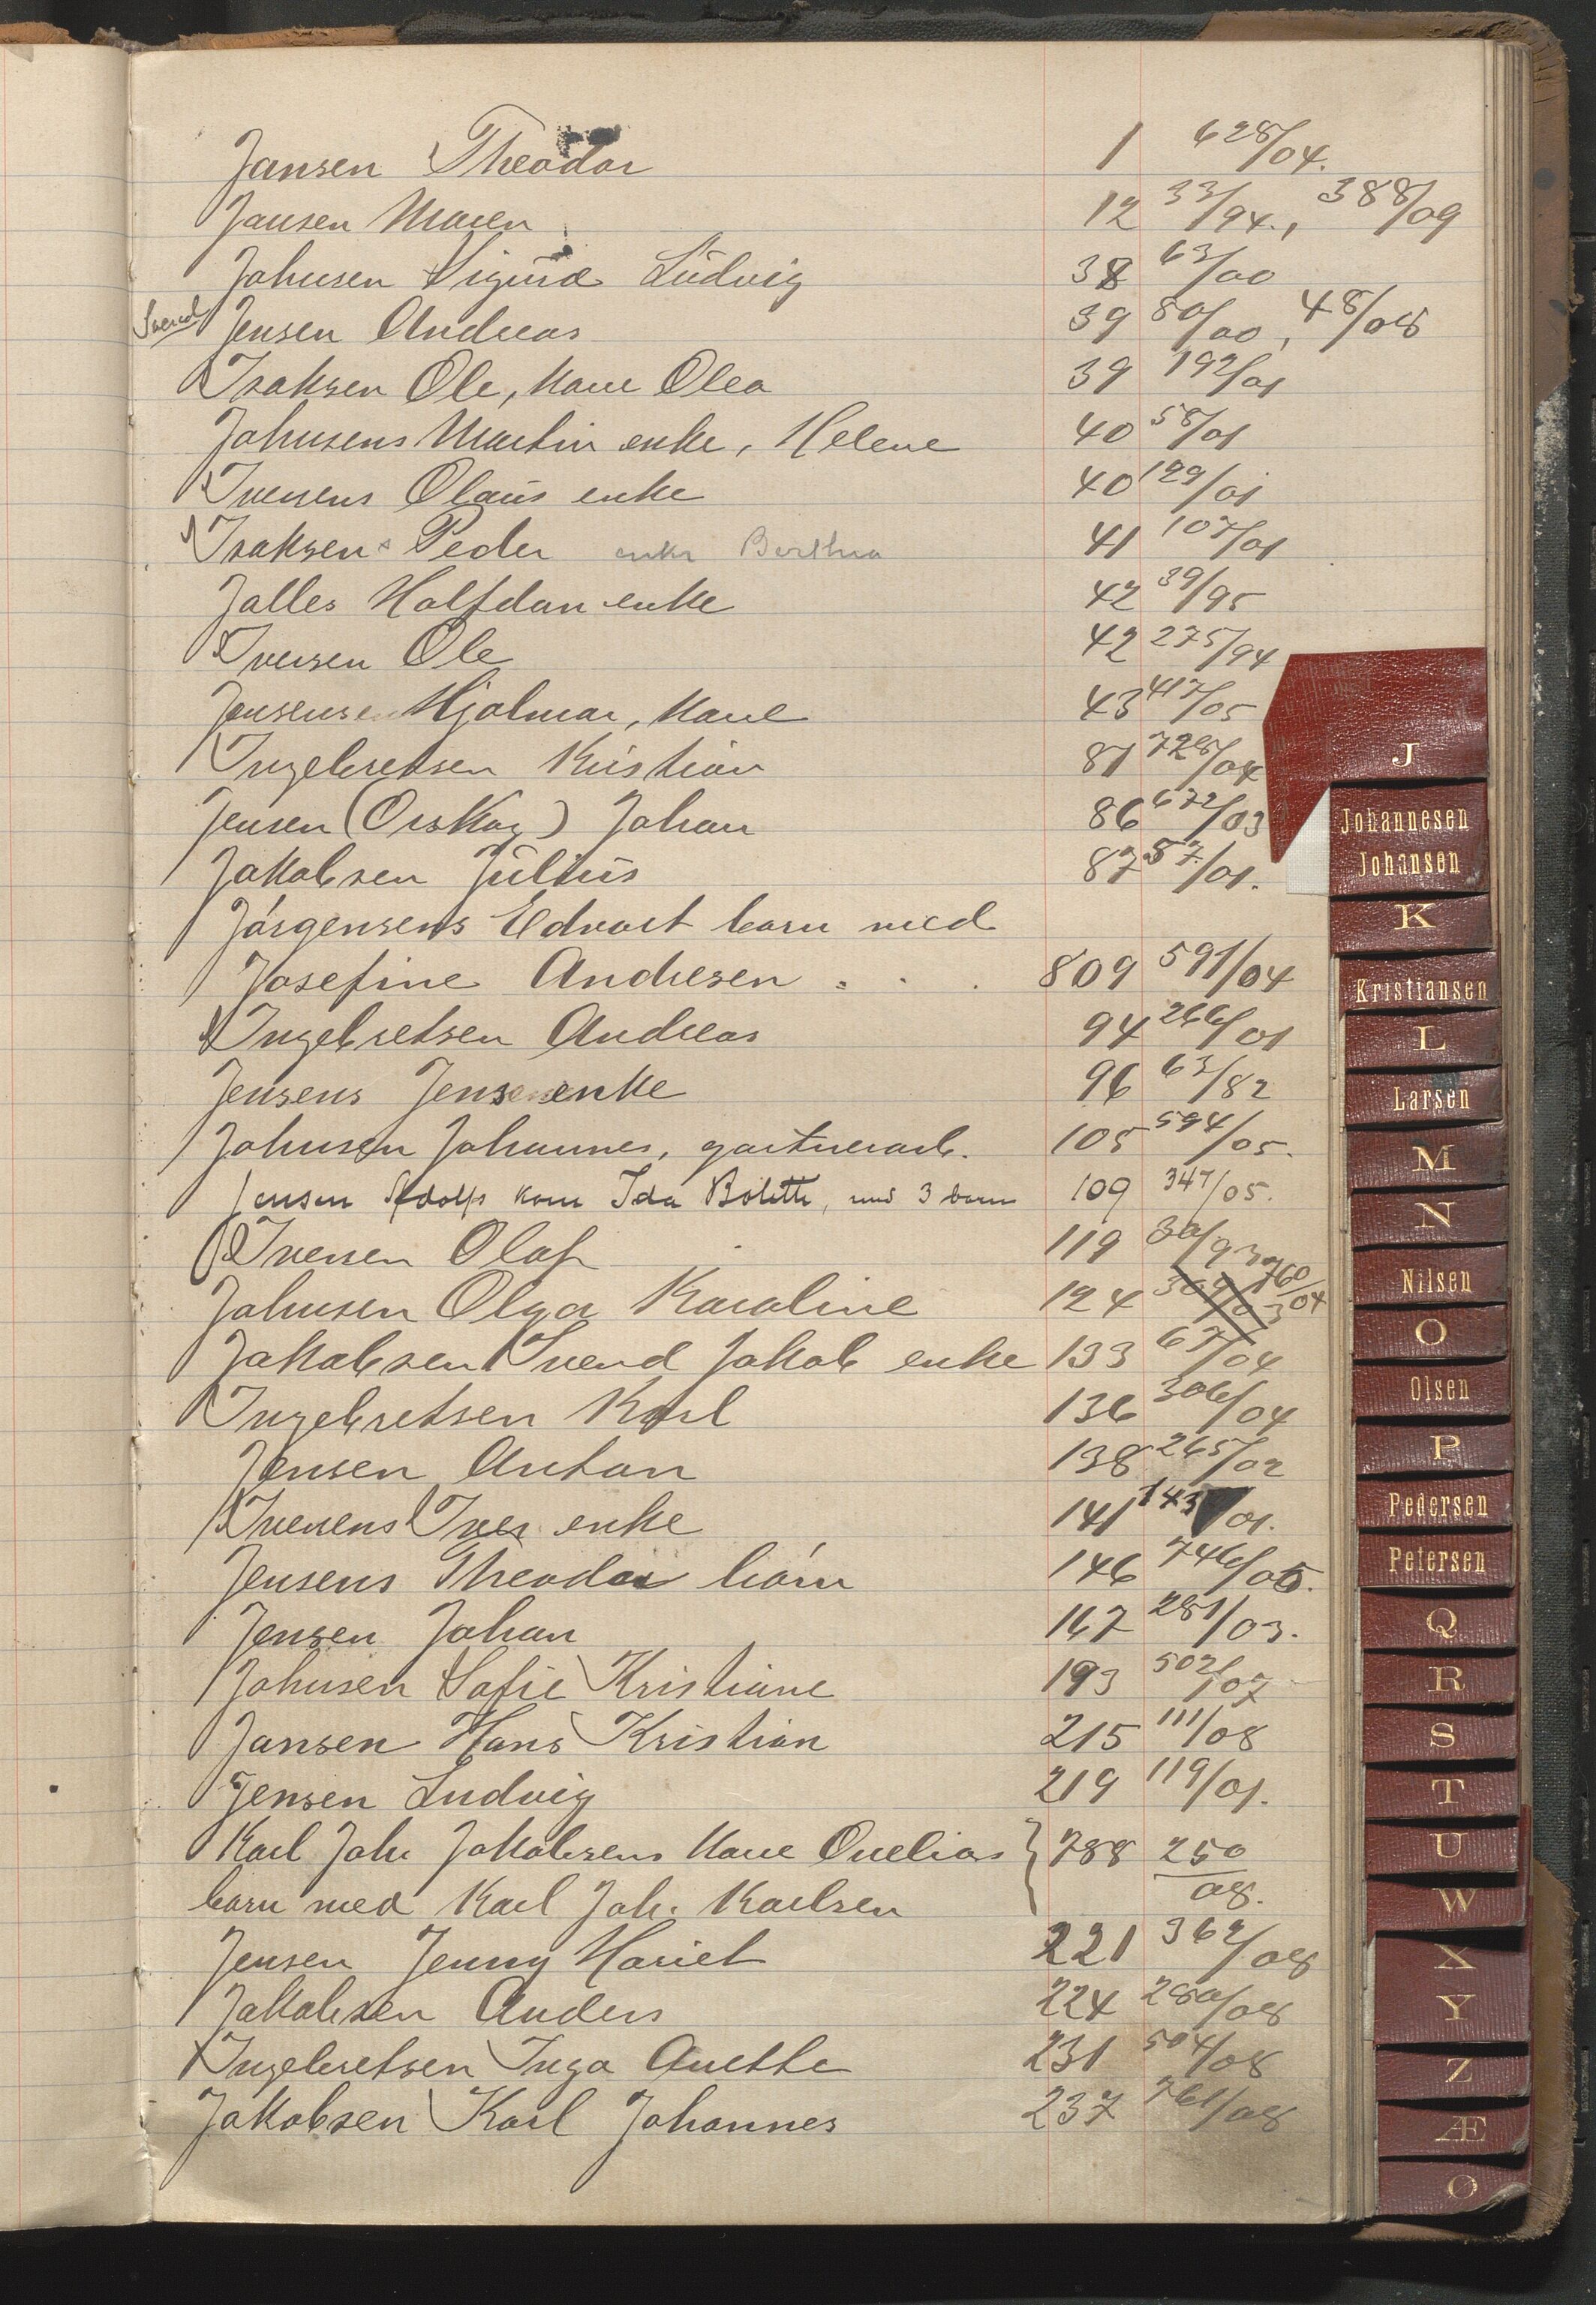 Jansen Theodor 1 628/04.
Jansen Maren 12 33/94., 388/09
Johnsen Sigurd Ludvig 38 63/00
Svend Jensen Andreas 39 80/00, 48/08
Isaksen Ole, kone Olea 39 192/01
Johnsens Martin enke, Helene 40 58/01
Iversens Olaus enke 40 129/01
Isaksen Peder enke Berthea 41 107/01
Jalles Halfdan enke 42 39/95
Iversen Ole 42 275/94
Jensens Hjalmar, kone 43 417/05
Ingebretsen Kristian 81 728/04
Jensen (Orskog) Johan 86 672/03
Jakobsen Julius 87 57/01.
Jørgensens Edvart barn med
Josefine Andresen 809 591/04
Ingebretsen Andreas 94 266/01
Jensens Jens enke 96 63/82
Johnsen Johannes, gartnerarb. 105 594/05.
Jensen Adolfs kone Ida Bolette, med 3 barn 109 347/05.
Iversen Olaf 119 30/93
Johnsen Olga Karoline 124 760/04
Jakobsen Svend Jakob enke 133 67/04
Ingebretsen Karl 136 306/04
Jensen Anton 138 265/02
Iversens Iver enke 141 143/01.
Jensens Theodor børn 146 746/05.
Jensen Johan 167 281/03.
Johnsen Sofie Kristiane 193 502/07
Jansen Hans Kristian 215 111/08
Jensen Ludvig 219 119/01.
Karl Joh. Jakobsens kone Ovelias 788 250
barn med Karl Joh. Karlsen 08.
Jensen Jenny Hariet 221 362/08
Jakobsen Anders 224 280/08
Ingebretsen Inga Anette 231 504/08
Jakobsen Karl Johannes 237 761/08
J
Johannesen
Johansen
K
Kristiansen
L
Larsen
M
N
Nilsen
O
Olsen
P
Pedersen
Petersen
Q
R
S
T
U
W
X
Y
Z
Æ
Ø